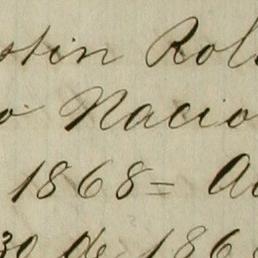 stin Rol
o Nacio
1868= A
30 de 186